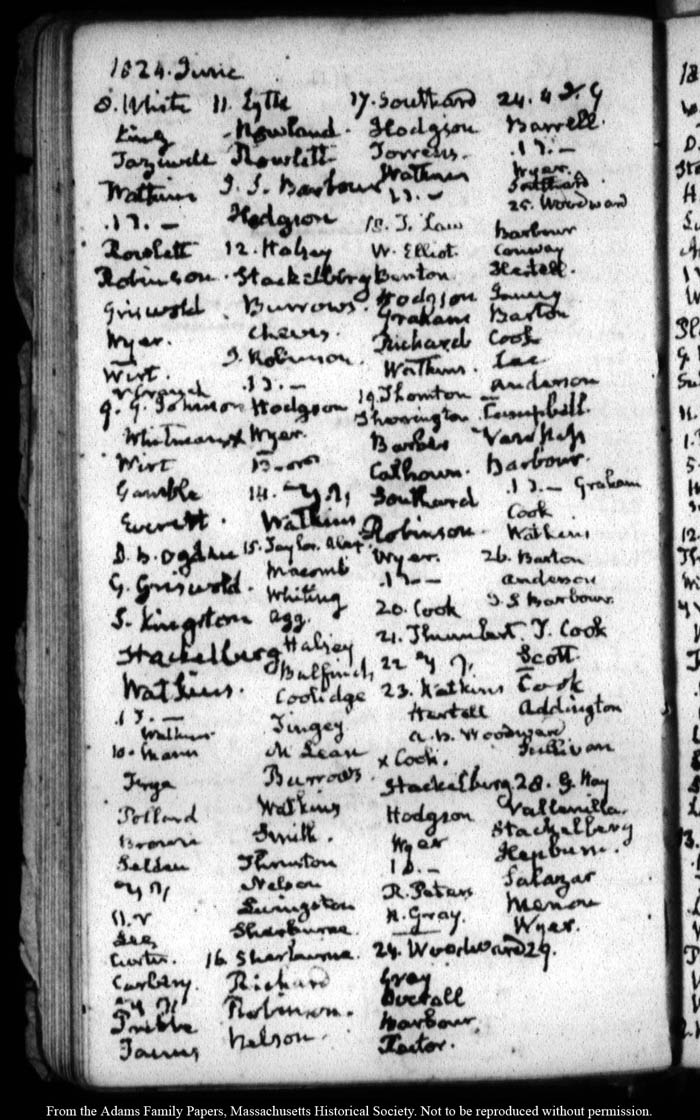 1824. June
8. White
King
Tazewell
Watkins
.17. —
Rowlett
Robinson.
Griswold
Wyer.
Wirt.
9. G. Johnson
Whitman
Wirt
Gamble
Everett.
D. B. Ogden
G. Griswold.
S. Kingston
Stackelburg
Watkins.
Watkins
10. Mann
Pollard
Brown
Selden
11. V
Lee
Curtis.
Pribble
11. Lytle
Rowland.
Rowlett
J. S. Barbour
Hodgson
12. Halsey
Stackelberg
Burrows.
Cheves.
J. Robinson.
.17. —
Hodgson
Wyer.
14.
Watkins
15. Taylor. Alex.
Macomb
Whiting
Egg.
Halsey
Bulfinch
Coolidge
Tingey
McLean
Burrows
Watkins
Smith.
Thruston
Nelson
Livingston
Sherburne
16. Sherburne.
Richard
Robinson.
Nelson.
17. Southard
Hodgson
Torrens.
Watkins
17. —
18. T. Law
W. Elliot.
Benton
Hodgson
Graham
Richard
Watkins.
19. Thornton
Therrington
Barber
Calhoun.
Southard
Robinson.
Wyer.
.17. —
20. Cook
21. Thumbert.
22
23. Watkins
Hertell
A. B. Woodward
x Cook.
Stackelburg
Hodgson
Wyer
R. Peters
N. Gray.
24. Woodward
Gray
Barbour
24. 4
Barrell.
.17. —
Wyer.
Southard
25. Woodward
Barbour
Conway
Hertell.
Barton
Cook
Lee
Anderson
Campbell.
Barbour.
.17. — Graham
Cook
Watkins
26. Barton
Anderson
J. S Barbour.
T. Cook
Scott.
Cook
Addington
Sullivan
28. G. Hay
Vallenilla
Stackelberg
Hepburn.
Salazar
Wyer.
29.
From the Adams Family Papers, Massachusetts Historical Society. Not to be reproduced without permission.